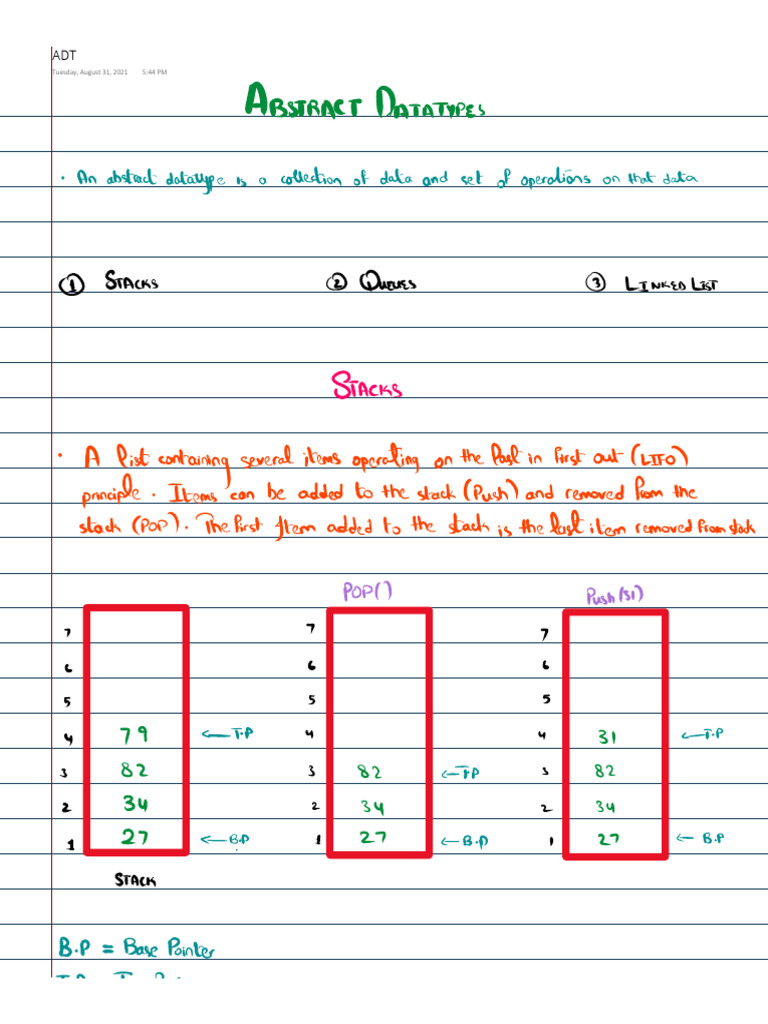 ADT
Tuesday, August 31, 2021 5:44 PM
ABSTRACT DATATYPES
· An abstract datatype is a collection of data and set of operations on that data
① STACKS ② QUEUES ③ LINKED LIST
STACKS
· A list containing several items operating on the last in first out (LIFO)
principle. Items can be added to the stack (Push) and removed from the
stack (POP). The first Item added to the stack is the last item removed from stack
POP() Push(31)
7 7 7
6 6 6
5 5 5
4 79 ← T.P 4 4 31 ← T.P
3 82 3 82 ← T.P 3 82
2 34 2 34 2 34
1 27 ← B.P 1 27 ← B.P 1 27 ← B.P
STACK
B.P = Base Pointer